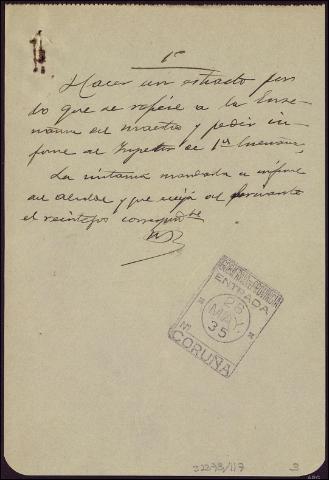 1º
Hacer un extracto por
lo que se refiere a la Ense-
ñanza del maestro y pedir in-
forme al Inspector de 1ª Enseñanza,
La instancia mandarla a informe
del Alcalde y que exija al firmante
el reintegro correspndte
ENTRADA
28
MAY.
35
Nº
CORUÑA
32233/117
3